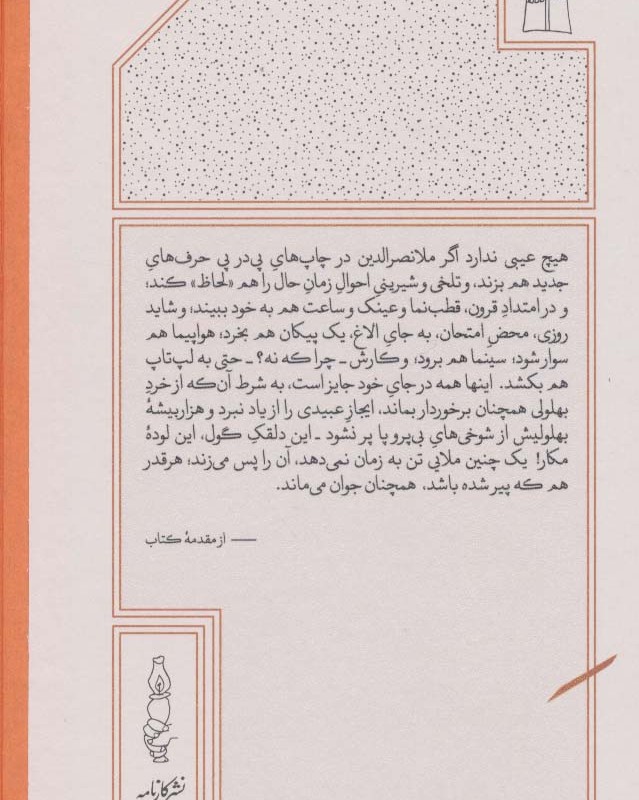 هیچ عیبی ندارد اگر ملانصرالدین در چاپ‌هایِ پی‌در پی حرف‌هایِ
جدید هم بزند، و تلخی و شیرینیِ احوالِ زمانِ حال را هم «لحاظ» کند؛
و در امتدادِ قرون، قطب‌نما و عینک و ساعت هم به خود ببیند؛ و شاید
روزی، محضِ امتحان، به جایِ الاغ، یک پیکان هم بخرد؛ هواپیما هم
سوار شود؛ سینما هم برود؛ و کارش ـ چرا که نه؟ ـ حتی به لپ‌تاپ
هم بکشد. اینها همه در جایِ خود جایز است، به شرط آن‌که از خردِ
بهلولی همچنان برخوردار بماند، ایجازِ عبیدی را از یاد نبرد و هزارپیشهٔ
بهلولیش از شوخی‌هایِ بی‌پرو پا پر نشود ـ این دلقکِ گول، این لودهٔ
مکار! یک چنین ملایی تن به زمان نمی‌دهد، آن را پس می‌زند؛ هرقدر
هم که پیر شده باشد، همچنان جوان می‌ماند.
— از مقدمهٔ کتاب
نشر کارنامه